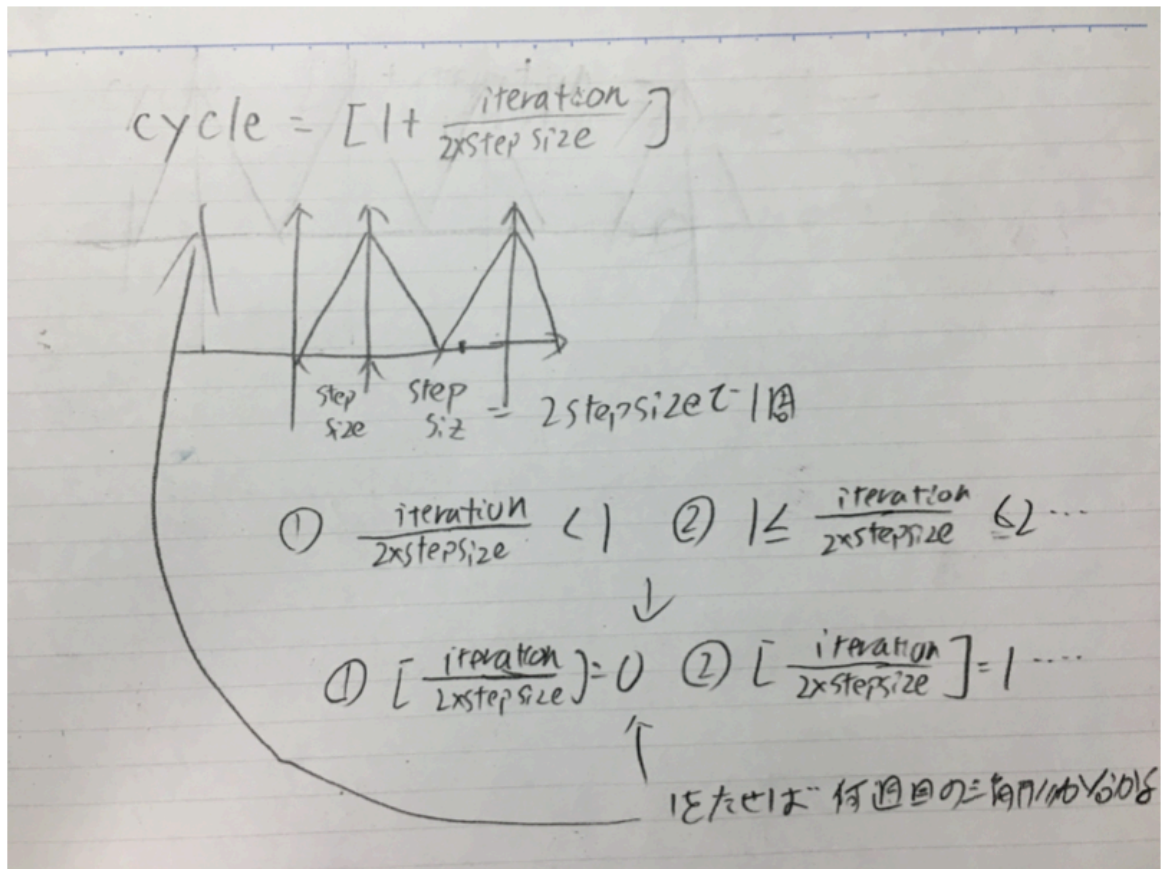 cycle = [1+ iteration / 2×step size ]
step size step siz = 2stepsizeで1周
① iteration / 2×stepsize < 1 ② 1≤ iteration / 2×stepsize ≤2 …
↓
① [ iteration / 2×stepsize ]=0 ② [ iteration / 2×stepsize ]=1 ….
↑
1をたせば 何週目の三角形か